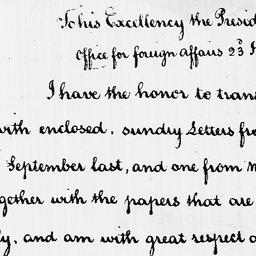 To his Excellency the Presid
Office for foreign Affairs 23d
I have the honor to tran
with enclosed, sundry Letters fr
September last, and one from
gether with the papers that are
ly, and am with great respect a